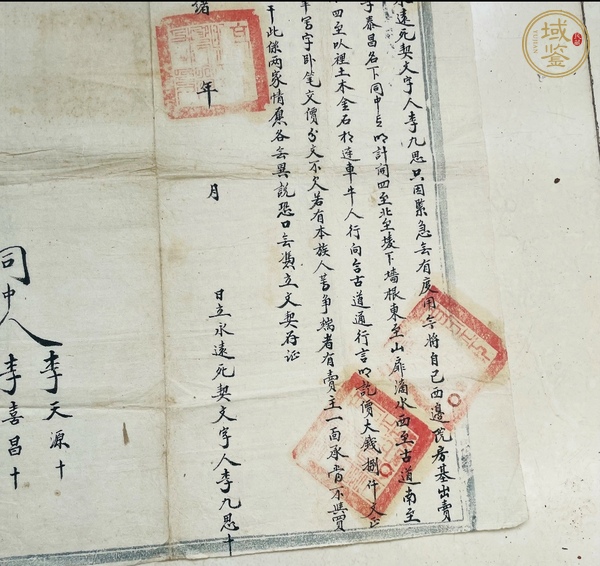 永遠死契文字人李九思只因緊急無有度用今將自己西邊院房基出賣
李泰昌名下同中言明計開四至北至堎下墻根東至山扉滴水西至古道南至
四至以裡土木金石相連車牛人行向合古道通行言明訖價大錢捌仟文正
筆寫字卧笔交價分文不欠若有本族人等爭端者有賣主一面承當不與買
干此係兩家情愿各無異說恐口無憑立文契存证
緒 年 月 日立永遠死契文字人李九思十
同中人 李天源十
李喜昌十
域鉴
YUJIAN